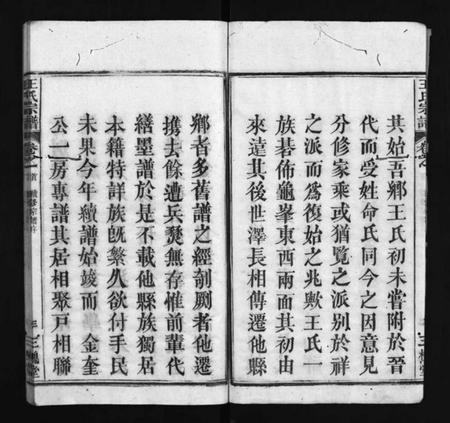 王氏宗譜
卷之
三槐堂
其始吾鄉王氏初未嘗附於晉
代而受姓命氏同今之因意見
分修家乘或猶覧之派別於祥
之派而爲復始之兆歟王氏一
族碁佈龜峯東西兩面其初由
來遠其後世澤長相傳遷他縣
鄉者多舊譜之經剞劂者他遷
攜去餘遭兵燹無存惟前輩代
繕墨譜於是不載他縣族獨居
本籍特詳族旣繁久欲付手民
未果今年續譜始竣而 金奎
公一房專譜其居相聚戸相聯
王氏宗譜
卷之
首
三
三槐堂